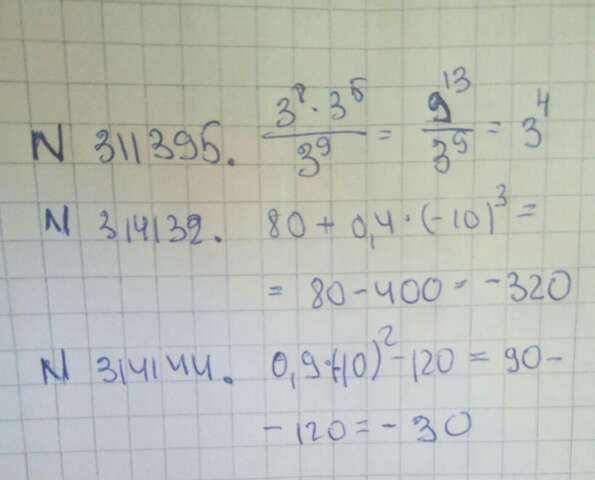 N 311395. (3⁸ · 3⁵)/3⁹ = 9¹³/3⁹ = 3⁴
N 314132. 80 + 0,4 · (-10)³ =
= 80 - 400 = -320
N 314144. 0,9·(-10)² - 120 = 90 -
- 120 = - 30